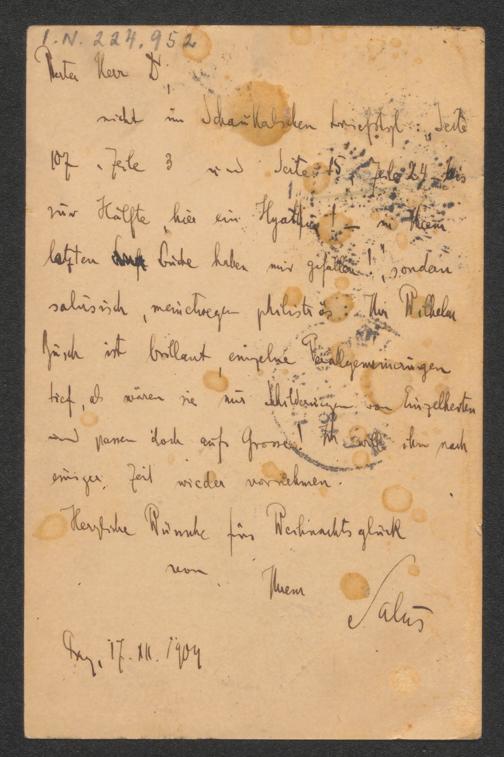 I.N. 224.952
Werter Herr D.,
nicht im Schaukalschen Briefstyl: „Seite
107, Zeile 3 und Seite 15, Zeile 24 bis
zur Hälfte, hier ein – in Ihrem
letzten Buche haben mir gefallen!", sondern
salusisch, meinetwegen philiströs: Ihr Wilhelm
Busch ist brillant, einzelne Verallgemeinerungen
tief, als wären sie nur Schilderungen von Einzelheiten
und passen doch aufs Grosse! Ich will ihn nach
einiger Zeit wieder vornehmen.
Herzliche Wünsche für Weihnachtsglück
von Ihrem
Salus
Prg, 17. XII. 1904